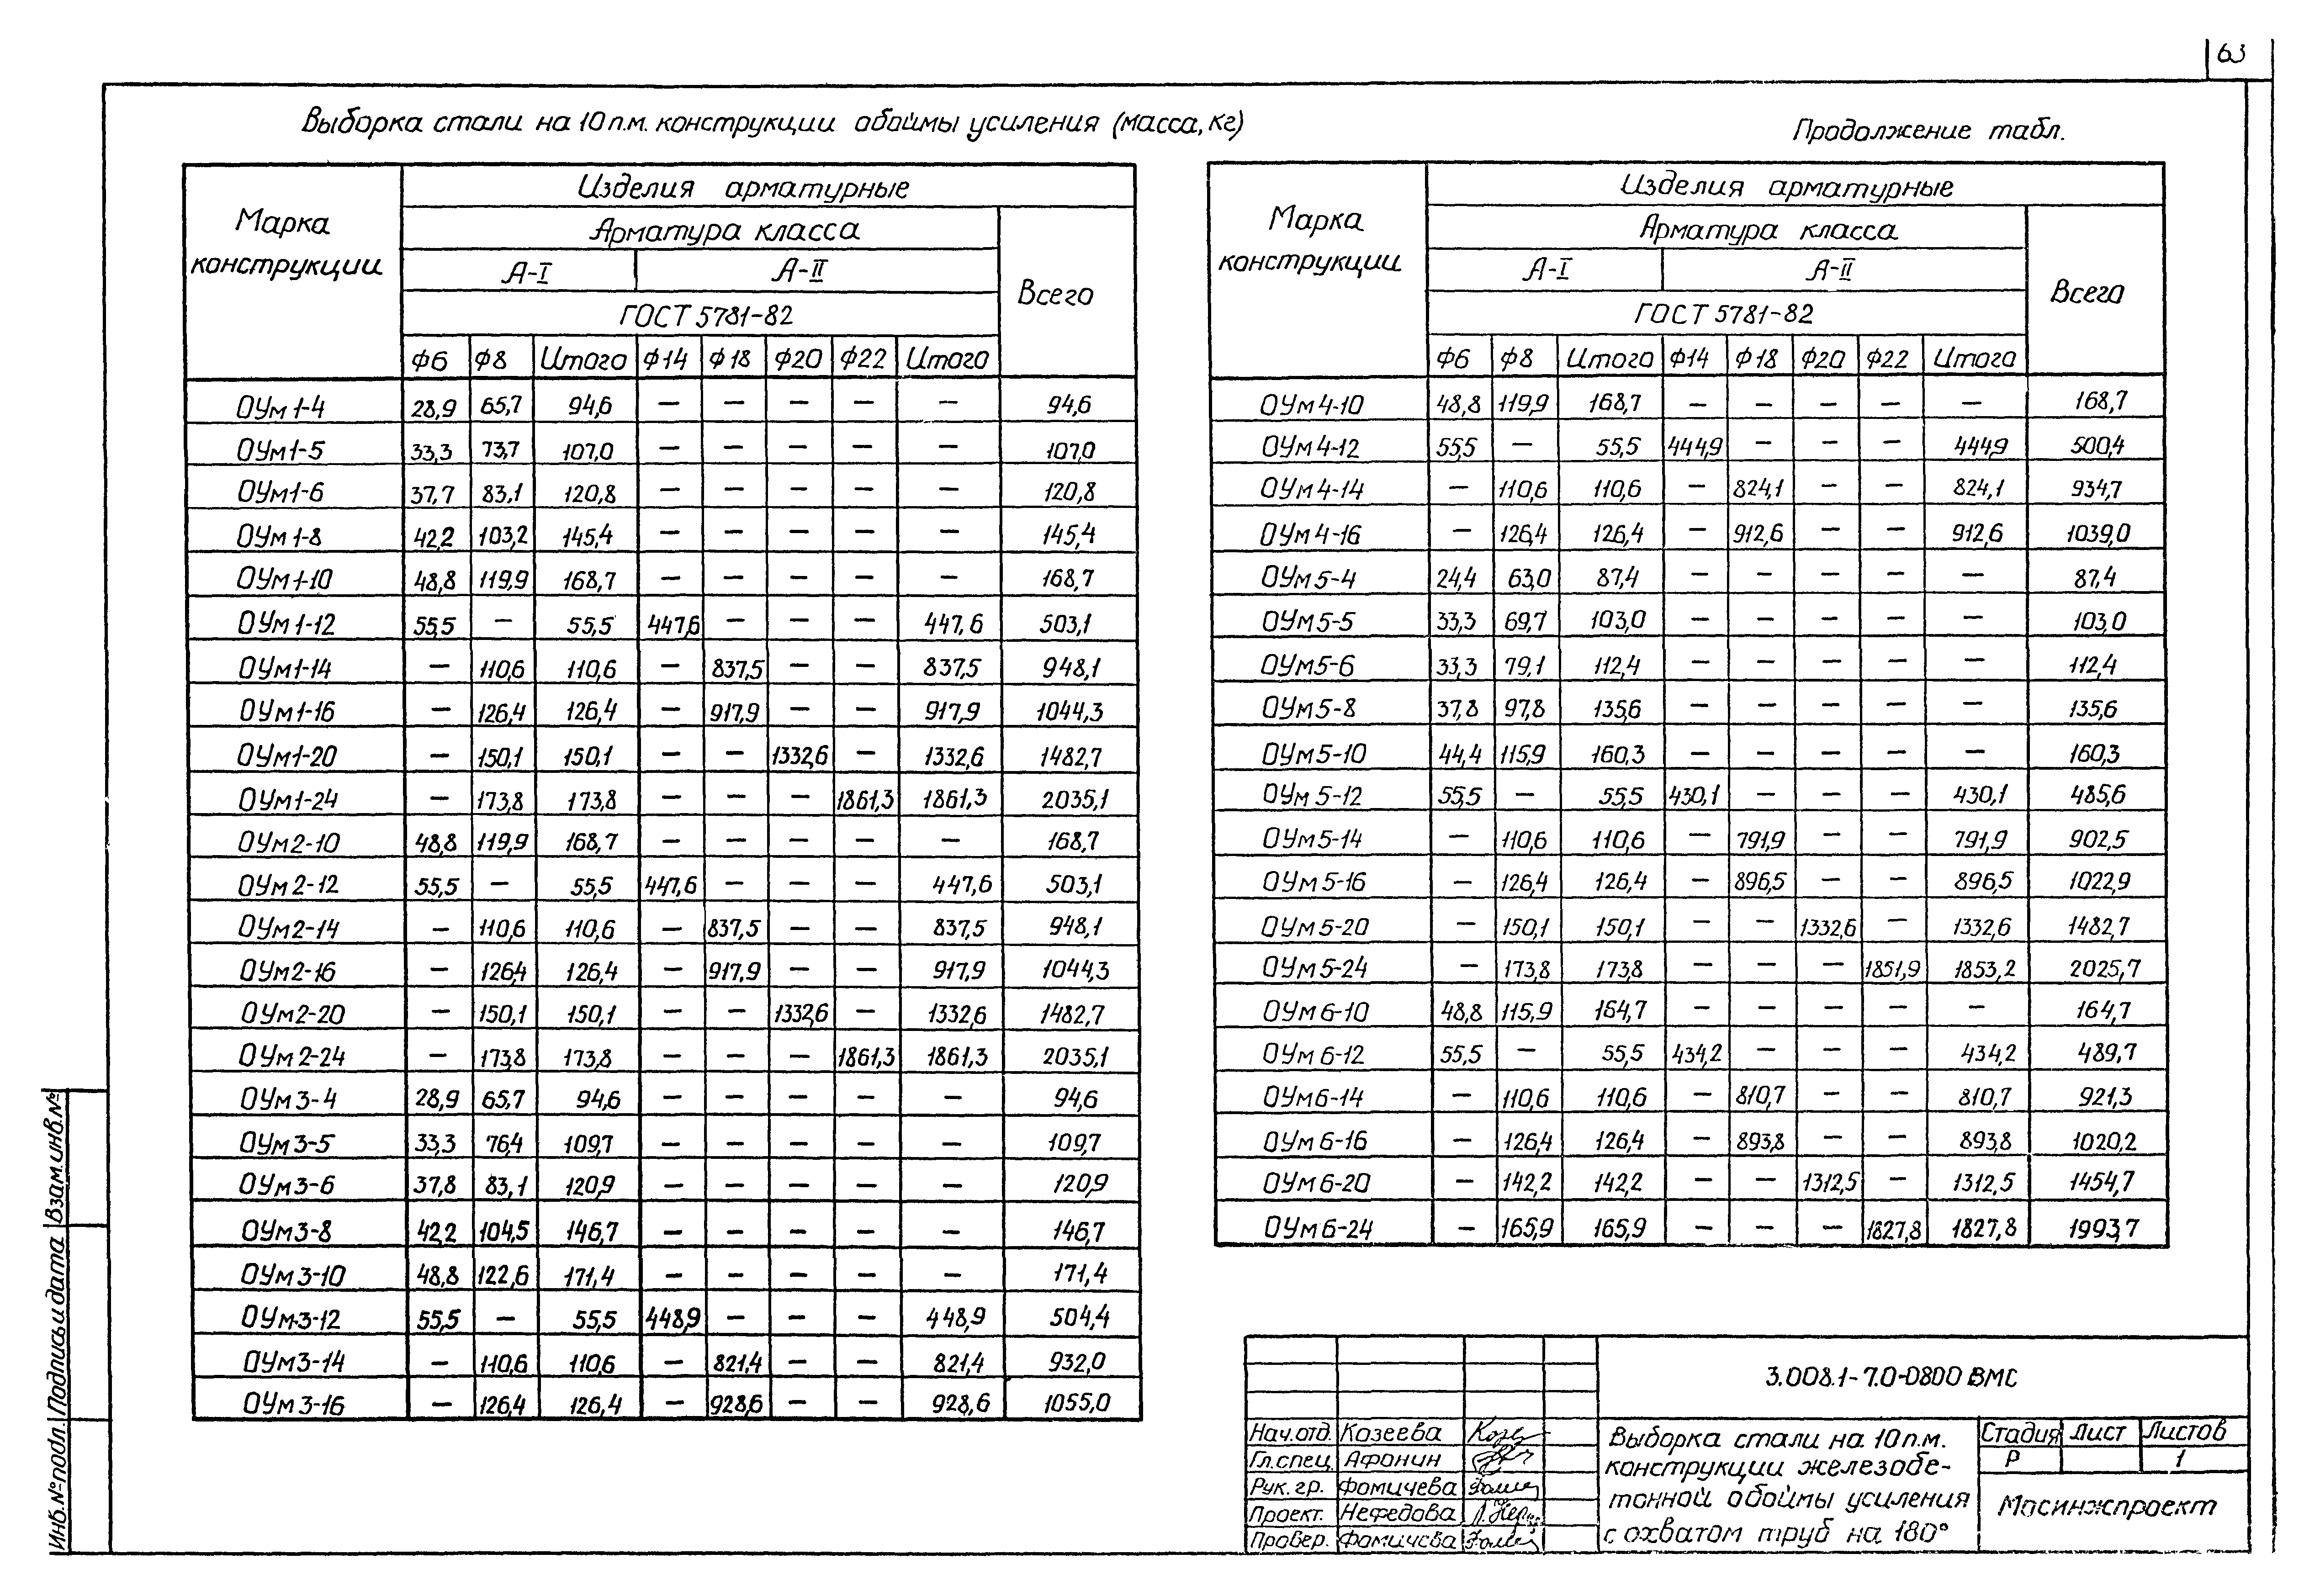 63
Выборка стали на 10 п.м. конструкции обоймы усиления (масса, кг)
Марка конструкции
Изделия арматурные
Арматура класса
Всего
А-I А-II
ГОСТ 5781-82
Ф6 Ф8 Итого Ф14 Ф18 Ф20 Ф22 Итого
ОУм1-4 28,9 65,7 94,6 — — — — — 94,6
ОУм1-5 33,3 73,7 107,0 — — — — — 107,0
ОУм1-6 37,7 83,1 120,8 — — — — — 120,8
ОУм1-8 42,2 103,2 145,4 — — — — — 145,4
ОУм1-10 48,8 119,9 168,7 — — — — — 168,7
ОУм1-12 55,5 — 55,5 447,6 — — — 447,6 503,1
ОУм1-14 — 110,6 110,6 — 837,5 — — 837,5 948,1
ОУм1-16 — 126,4 126,4 — 917,9 — — 917,9 1044,3
ОУм1-20 — 150,1 150,1 — — 1332,6 — 1332,6 1482,7
ОУм1-24 — 173,8 173,8 — — — 1861,3 1861,3 2035,1
ОУм2-10 48,8 119,9 168,7 — — — — — 168,7
ОУм2-12 55,5 — 55,5 447,6 — — — 447,6 503,1
ОУм2-14 — 110,6 110,6 — 837,5 — — 837,5 948,1
ОУм2-16 — 126,4 126,4 — 917,9 — — 917,9 1044,3
ОУм2-20 — 150,1 150,1 — — 1332,6 — 1332,6 1482,7
ОУм2-24 — 173,8 173,8 — — — 1861,3 1861,3 2035,1
ОУм3-4 28,9 65,7 94,6 — — — — — 94,6
ОУм3-5 33,3 76,4 109,7 — — — — — 109,7
ОУм3-6 37,8 83,1 120,9 — — — — — 120,9
ОУм3-8 42,2 104,5 146,7 — — — — — 146,7
ОУм3-10 48,8 122,6 171,4 — — — — — 171,4
ОУм3-12 55,5 — 55,5 448,9 — — — 448,9 504,4
ОУм3-14 — 110,6 110,6 — 821,4 — — 821,4 932,0
ОУм3-16 — 126,4 126,4 — 928,6 — — 928,6 1055,0
Продолжение табл.
Марка конструкции
Изделия арматурные
Арматура класса
Всего
А-I А-II
ГОСТ 5781-82
Ф6 Ф8 Итого Ф14 Ф18 Ф20 Ф22 Итого
ОУм4-10 48,8 119,9 168,7 — — — — — 168,7
ОУм4-12 55,5 — 55,5 444,9 — — — 444,9 500,4
ОУм4-14 — 110,6 110,6 — 824,1 — — 824,1 934,7
ОУм4-16 — 126,4 126,4 — 912,6 — — 912,6 1039,0
ОУм5-4 24,4 63,0 87,4 — — — — — 87,4
ОУм5-5 33,3 69,7 103,0 — — — — — 103,0
ОУм5-6 33,3 79,1 112,4 — — — — — 112,4
ОУм5-8 37,8 97,8 135,6 — — — — — 135,6
ОУм5-10 44,4 115,9 160,3 — — — — — 160,3
ОУм5-12 55,5 — 55,5 430,1 — — — 430,1 485,6
ОУм5-14 — 110,6 110,6 — 791,9 — — 791,9 902,5
ОУм5-16 — 126,4 126,4 — 896,5 — — 896,5 1022,9
ОУм5-20 — 150,1 150,1 — — 1332,6 — 1332,6 1482,7
ОУм5-24 — 173,8 173,8 — — — 1851,9 1853,2 2025,7
ОУм6-10 48,8 115,9 164,7 — — — — — 164,7
ОУм6-12 55,5 — 55,5 434,2 — — — 434,2 489,7
ОУм6-14 — 110,6 110,6 — 810,7 — — 810,7 921,3
ОУм6-16 — 126,4 126,4 — 893,8 — — 893,8 1020,2
ОУм6-20 — 142,2 142,2 — — 1312,5 — 1312,5 1454,7
ОУм6-24 — 165,9 165,9 — — — 1827,8 1827,8 1993,7
3.008.1-7.0-0800 ВМС
Нач.отд. Козеева
Гл.спец. Афонин
Рук. гр. Фомичева
Проект. Нефедова
Провер. Фомичева
Выборка стали на 10 п.м.
конструкции железобе-
тонной обоймы усиления
с охватом труб на 180°
Стадия Лист Листов
Р 1
Мосинжпроект
Инв.№ подл. Подпись и дата Взам.инв.№